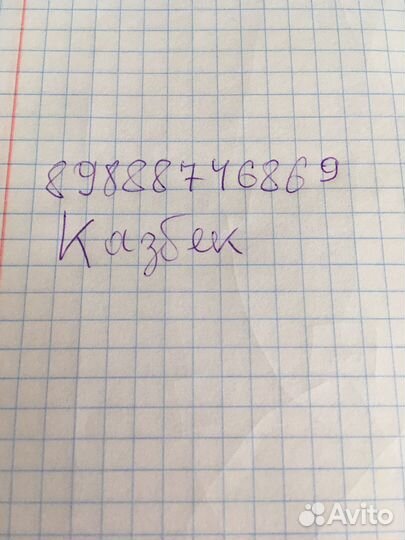 89888746869
Казбек
Avito